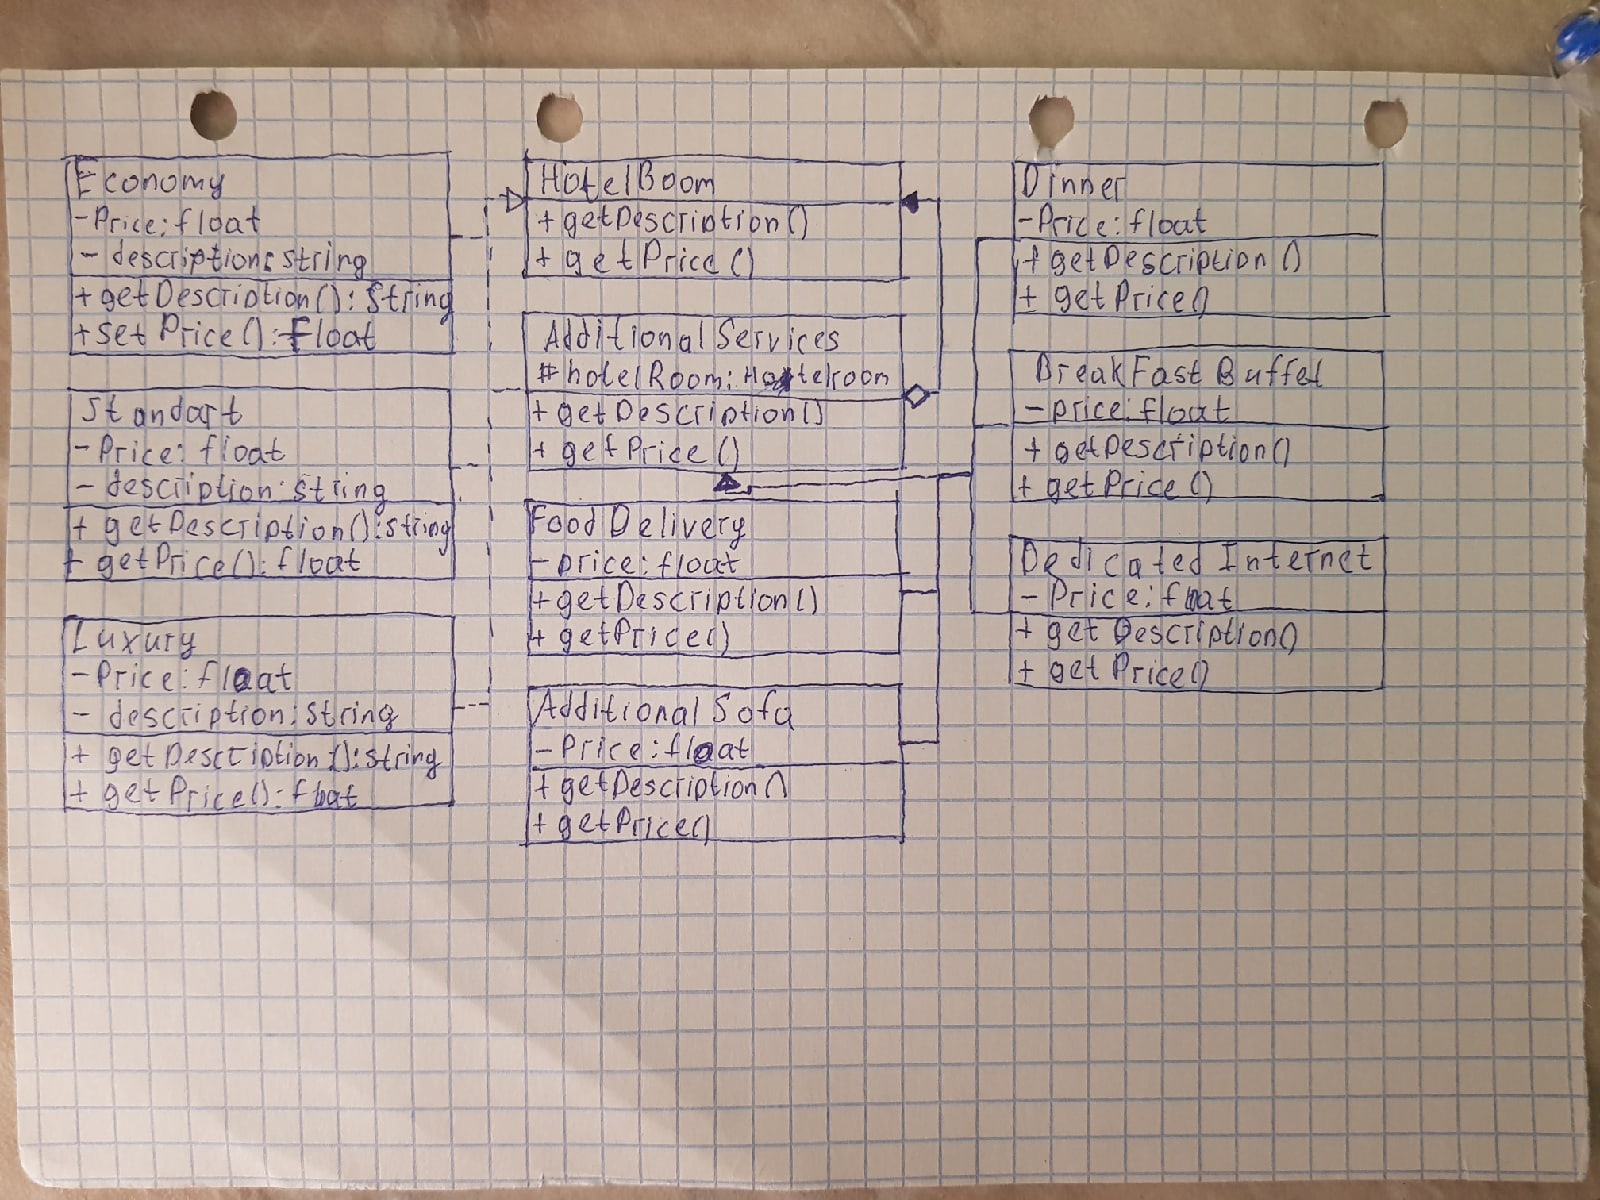 Economy
- Price: float
- description: string
+ getDescription(): String
+ set Price(): float
Standart
- Price: float
- description: string
+ getDescription(): string
+ getPrice(): float
Luxury
- Price: float
- description: string
+ getDescription(): string
+ getPrice(): float
HotelBoom
+ getDescription()
+ getPrice()
Additional Services
# hotelRoom: Hotelroom
+ getDescription()
+ getPrice()
Food Delivery
- price: float
+ getDescription()
+ getPrice()
Additional Sofa
- Price: float
+ getDescription()
+ getPrice()
Dinner
- Price: float
+ getDescription()
+ getPrice()
BreakFast Buffet
- price: float
+ getDescription()
+ getPrice()
Dedicated Internet
- Price: float
+ getDescription()
+ getPrice()